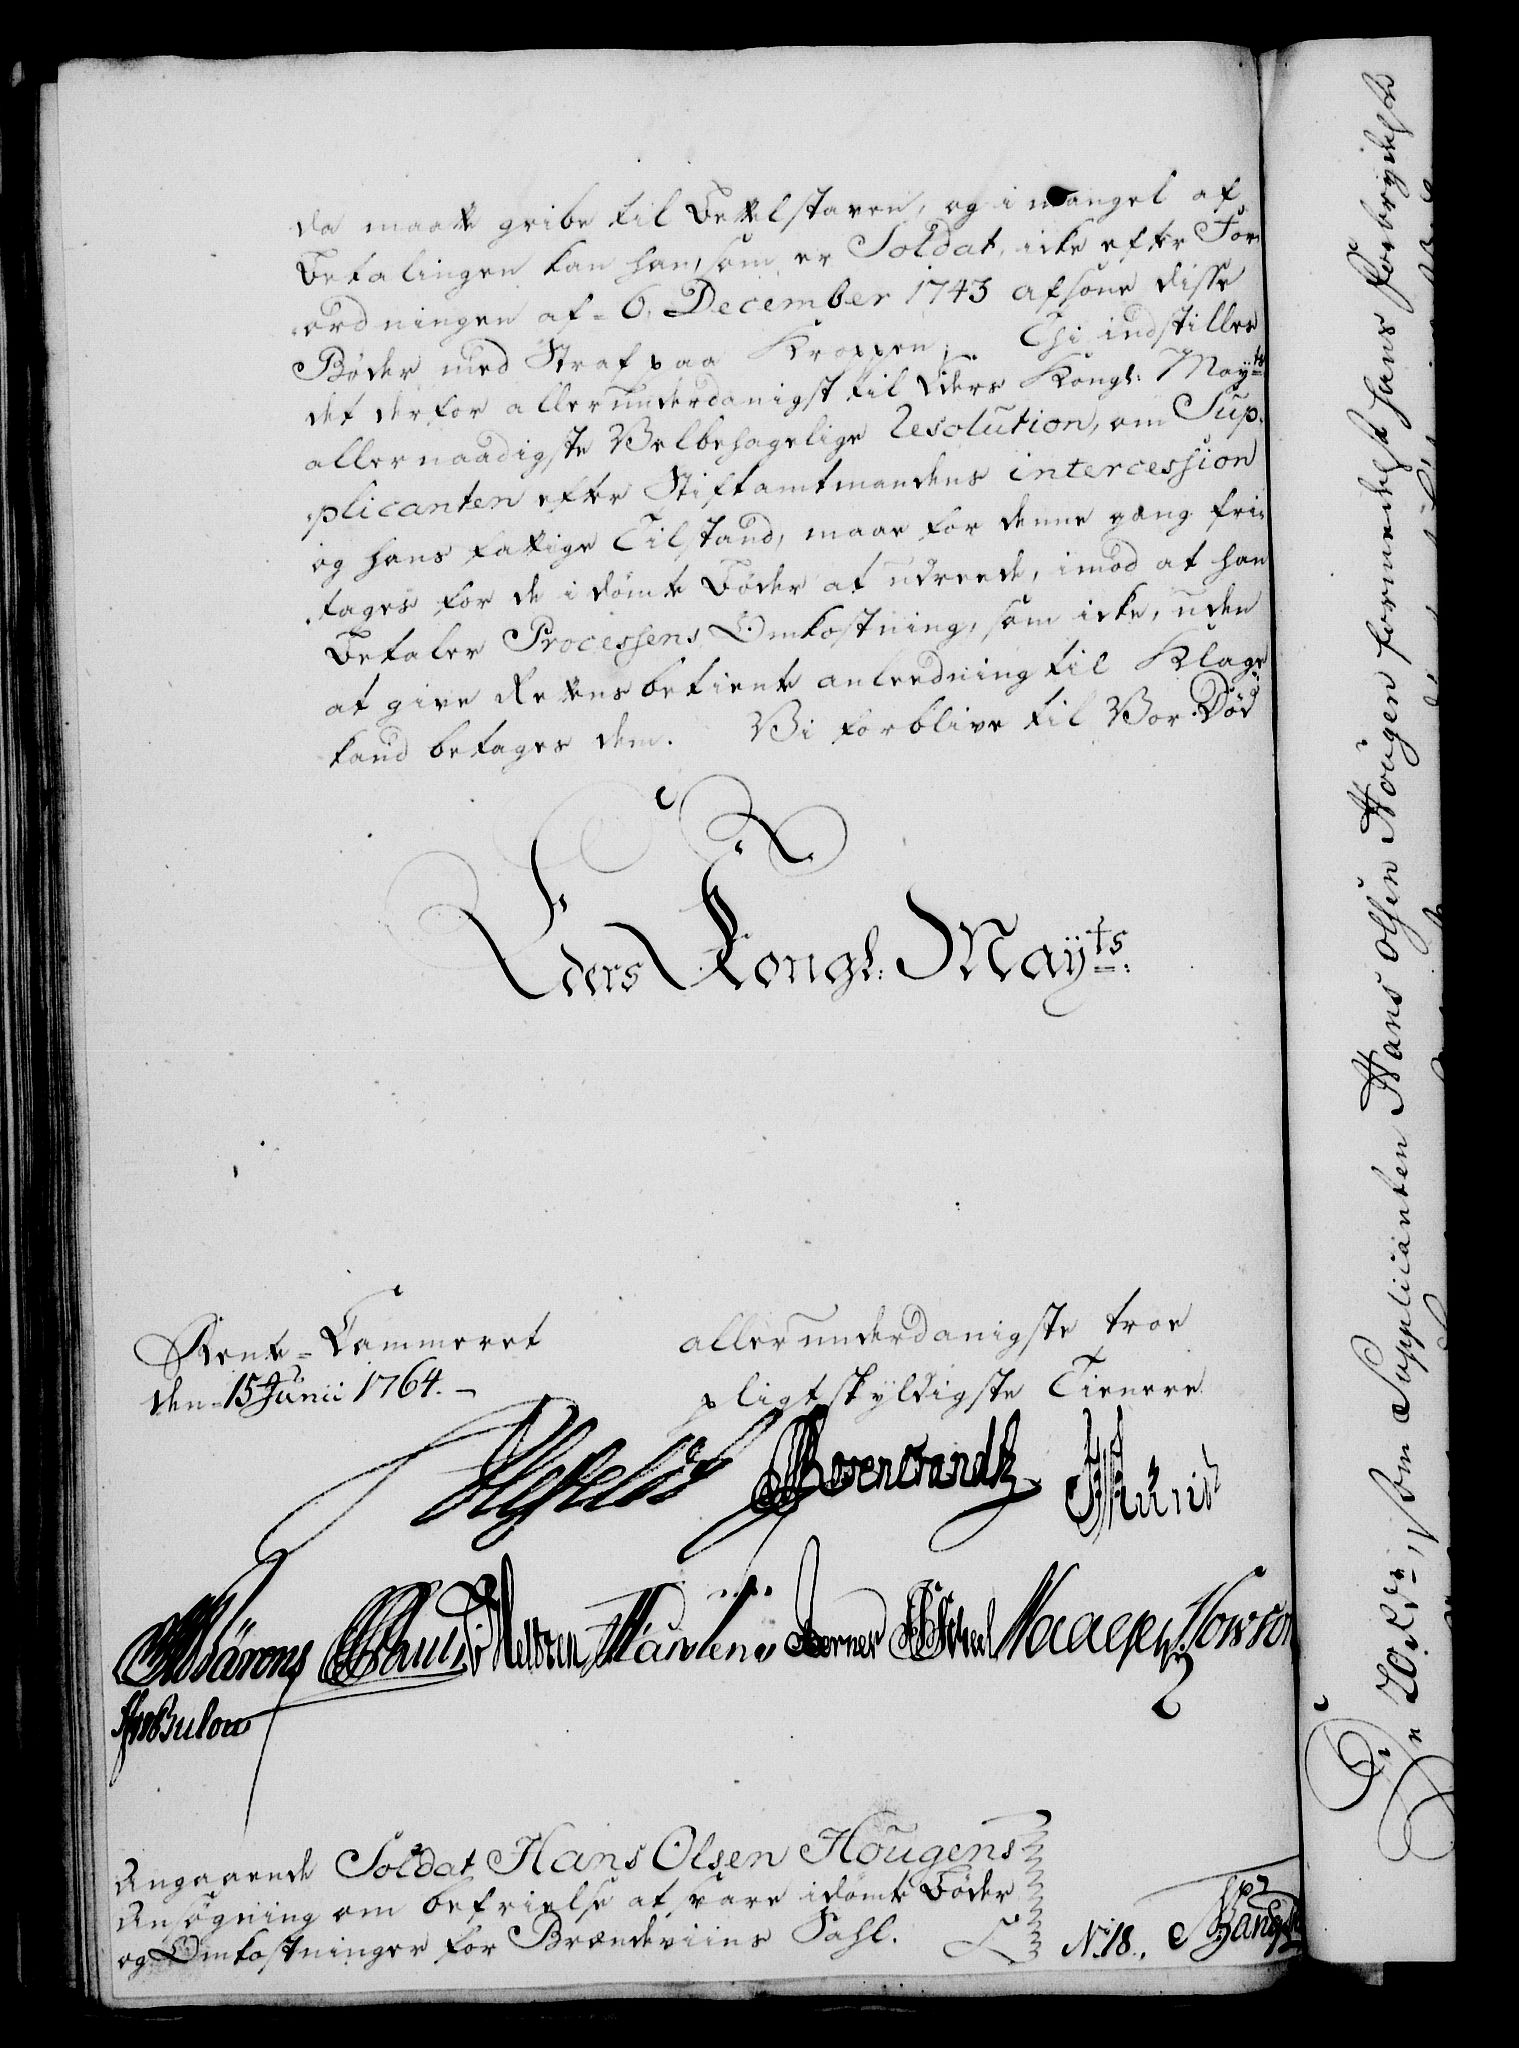 da maatte gribe til Bettelstaven, og i mangel af
Betalingen kan han, som er Soldat, icke efter For-
ordningen af 6. December 1743 afsone disse
Bøder med Straf paa Kroppen; Thi indstilles
det derfor allerunderdanigst til Eders Kongl: Mayts
allernaadigste Velbehagelige Resolution, om Sup-
plicanten efter Stiftamtmandens intercession
og hans fattige Tilstand, maae for denne gang fri-
tages for de idømte Bøder at udreede, imod at han
Betaler Processens Omkostning, som icke, uden
at give Rettens betiente anleedning til Klage
kand betages dem. Vi forblive til Vor Död
Eders Kongl: Mayts:
Rente-Cammeret
den 15 Junii 1764.
allerunderdanigste troe
pligtskyldigste Tienere
Rosencrandtz
Bärens
Martens Berner
Bulow
Angaaende Soldat Hans Olsen Hougens
Ansøgning om befrielse at svare idømte Bøder
og Omkostninger for Brændeviins Sahl.
N. 18.
som Supplicanten Hans Olsen Hougen formedelst hans Forbrydelse